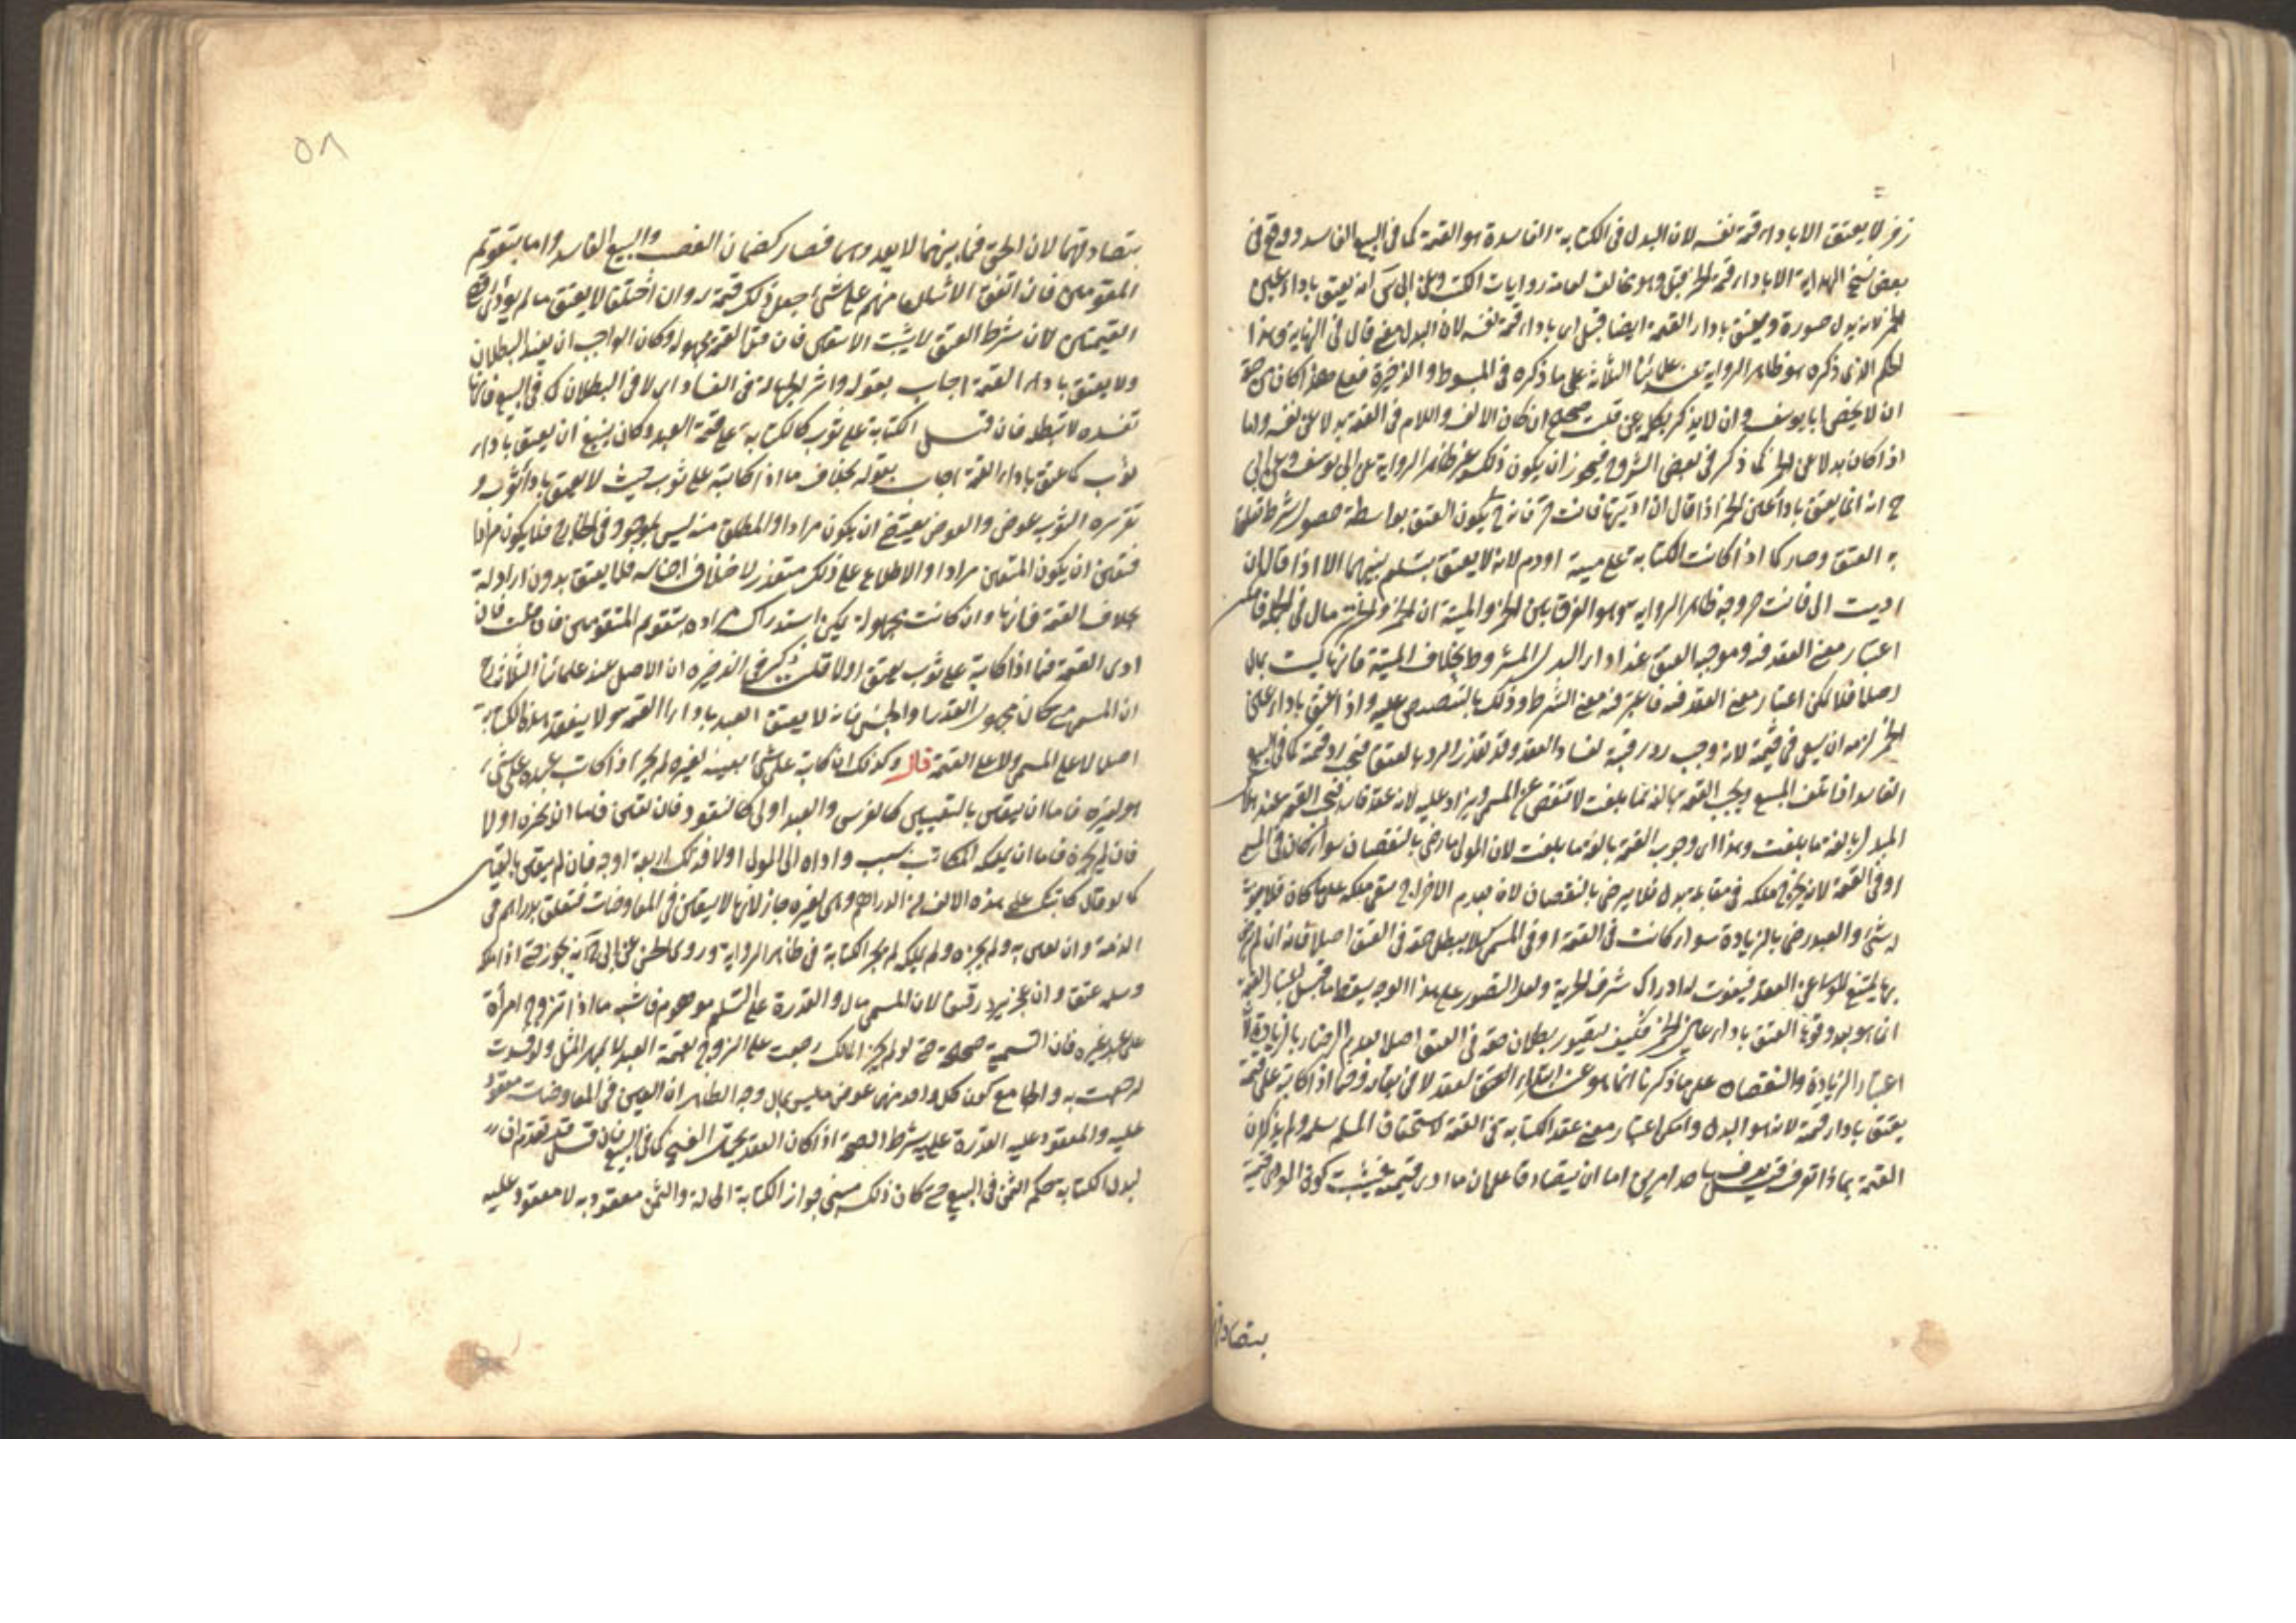 زفر لا يعتق الا باداء قيمة نفسه لان البدل في الكتابة الفاسدة هو القيمة كما في البيع الفاسد ووقع في
بعض نسخ الهداية الا باداء قيمة الخمر وهو مخالف لعامة روايات الكتب وعن ابي يوسف انه يعتق باداء عين
الخمر لانه بدل صورة ويعتق باداء القيمة ايضا قيل اي باداء قيمة نفسه لان البدل معنى قال في النهاية وهذا
الحكم الذي ذكره هو ظاهر الرواية عند علمائنا الثلاثة على ما ذكره في المبسوط والذخيرة فعلى هذا كان من حقه
ان لا يخص ابا يوسف وان لا يذكر بكلمة عن قلت صحيح ان كان الالف واللام في القيمة بدلا عن نفسه واما
اذا كان بدلا عن الخمر كما ذكر في بعض الشروح فيجوز ان يكون ذلك غير ظاهر الرواية عن ابي يوسف وعن ابي
ح انه انما يعتق باداء عين الخمر اذا قال ان اديتها فانت حر فانه ح يكون العتق بواسطة حصول شرط
به العتق وصار كما اذا كانت الكتابة على ميتة او دم لانه لا يعتق بتسليم عينهما الا اذا قال ان
اديت الي فانت حر وجه ظاهر الرواية وهو الفرق بين الخمر والميتة ان الخمر والخنزير مال في الجملة فامكن
اعتبار معنى العقد فيه وموجبه العتق عند اداء البدل المشروط بخلاف الميتة فانها ليست بمال
اصلا فلا يمكن اعتبار معنى العقد فيه فاعتبر فيه معنى الشرط وذلك بالتنصيص عليه واذا عتق باداء عين
الخمر لزمه ان يسعى في قيمته لانه وجب رد رقبته لفساد العقد وقد تعذر الرد بالعتق فيجب رد قيمته كما في البيع
الفاسد اذا تلف المبيع ويجب القيمة بالغة ما بلغت لا تنقص عن المسمى ويزاد عليه لانه عقد فاسد فيجب القيمة عند هلاك
المبدل بالغة ما بلغت وهذا اي وجوب القيمة بالغة ما بلغت لان المولى ما رضي بالنقصان سواء كان في المسمى
او في القيمة لانه يخرج ملكه في مقابلة بدل فلا يرضى بالنقصان لان بعدم الاخراج يبقى ملكه على ما كان فلا يفوت
له شيء والعبد رضي بالزيادة سواء كانت في القيمة او في المسمى كيلا يبطل حقه في العتق اصلا فانه ان لم يرض
بها يمتنع المولى عن العقد فيفوت له ادراك شرف الحرية وعلى التصوير على هذا الوجه يسقط ما قيل اعتبار القيمة
انما هو بعد وقوع العتق باداء عين الخمر فكيف يتصور بطلان حقه في العتق اصلا بعدم الرضاء بالزيادة لان
اعتبار الزيادة والنقصان على ما ذكرنا انما هو عند ابتداء العقد لا في بقائه وفيما اذا كاتبه على قيمته
يعتق باداء قيمته لانه هو البدل وامكن اعتبار معنى عقد الكتابة في القيمة لاستحقاق المسلم سلمه ولم يذكر ان
القيمة بماذا تعرف قيل يعرف باحد امرين اما ان يتصادقا على ان ما ادى قيمته فيثبت كون المودى قيمة
بتصادقهما
٥٨
بتصادقهما لان الحق فيما بينهما لا يعدوهما فصار كضمان الغصب والبيع الفاسد واما بتقويم
المقومين فان اتفق الاثنان منهم على شيء جعل ذلك قيمة له وان اختلفا لا يعتق ما لم يؤد اقصى
القيمتين لان شرط العتق لا يثبت الا بيقين فان قيل القيمة مجهولة وكان الواجب ان يفيد البطلان
ولا يعتق باداء القيمة اجاب بقوله واثر الجهالة في الفساد اي لا في البطلان كما في البيع فانها
تفسده لا تبطله فان قيل الكتابة على ثوب كالكتابة على قيمة العبد وكان ينبغي ان يعتق باداء
ثوب كما عتق باداء القيمة اجاب بقوله بخلاف ما اذا كاتبه على ثوب حيث لا يعتق باداء ثوب و
تقريره الثوب عوض والعوض يقتضي ان يكون مرادا والمطلق منه ليس بموجود في الخارج فلا يكون مرادا
فتعين ان يكون المتعين مرادا والاطلاع على ذلك متعذر لاختلاف اجناسه فلا يعتق بدون ارادته
بخلاف القيمة فانها وان كانت مجهولة يمكن استدراك مراده بتقويم المقومين فان قلت فان
ادى القيمة فيما اذا كاتبه على ثوب يعتق او لا قلت ذكر في الذخيرة ان الاصل عند علمائنا الثلاثة رح
ان المسمى متى كان مجهول القدر او الجنس فانه لا يعتق العبد باداء القيمة ولا ينعقد هذه الكتابة
اصلا لا على المسمى ولا على القيمة قال وكذلك ان كاتبه على شيء بعينه لغيره لم يجز اذا كاتب عبده على شيء
هو لغيره فاما ان يتعين بالتعيين كالفرس والعبد او لا كالنقود فان تعين فاما ان يجيزه او لا
فان لم يجزه فاما ان يملكه المكاتب بسبب واداه الى المولى او لا فذلك اربعة اوجه فان لم يتعين بالتعيين
كما لو قال كاتبتك على هذه الالف من الدراهم وهي لغيره جاز لانها لا يتعين في المعاوضات فيتعلق بدراهم في
الذمة وان تعين به ولم يجزه ولم يملكه لم يجز الكتابة في ظاهر الرواية وروى الحسن عن ابي ح انه يجوز حتى اذا ملكه
وسلمه عتق وان عجز يرد رقيقا لان المسمى مال والقدرة على التسليم موهوم فاشبه ما اذا تزوج امرأة
على عبد غيره فان التسمية صحيحة حتى لو لم يجز المالك رجعت على الزوج بقيمة العبد لا بمهر المثل ولو فسدت
لرجعت به والجامع كون كل واحد منهما عوض ما ليس بمال وجه الظاهر ان العين في المعاوضات معقود
عليه والمعقود عليه القدرة عليه شرط الصحة اذا كان العقد يحتمل الفسخ كما في البيع فان قيل قد تقدم ان
لبدل الكتابة حكم الثمن في البيع حتى كان ذلك مبنى جواز الكتابة الحالة والثمن معقود به لا معقود عليه